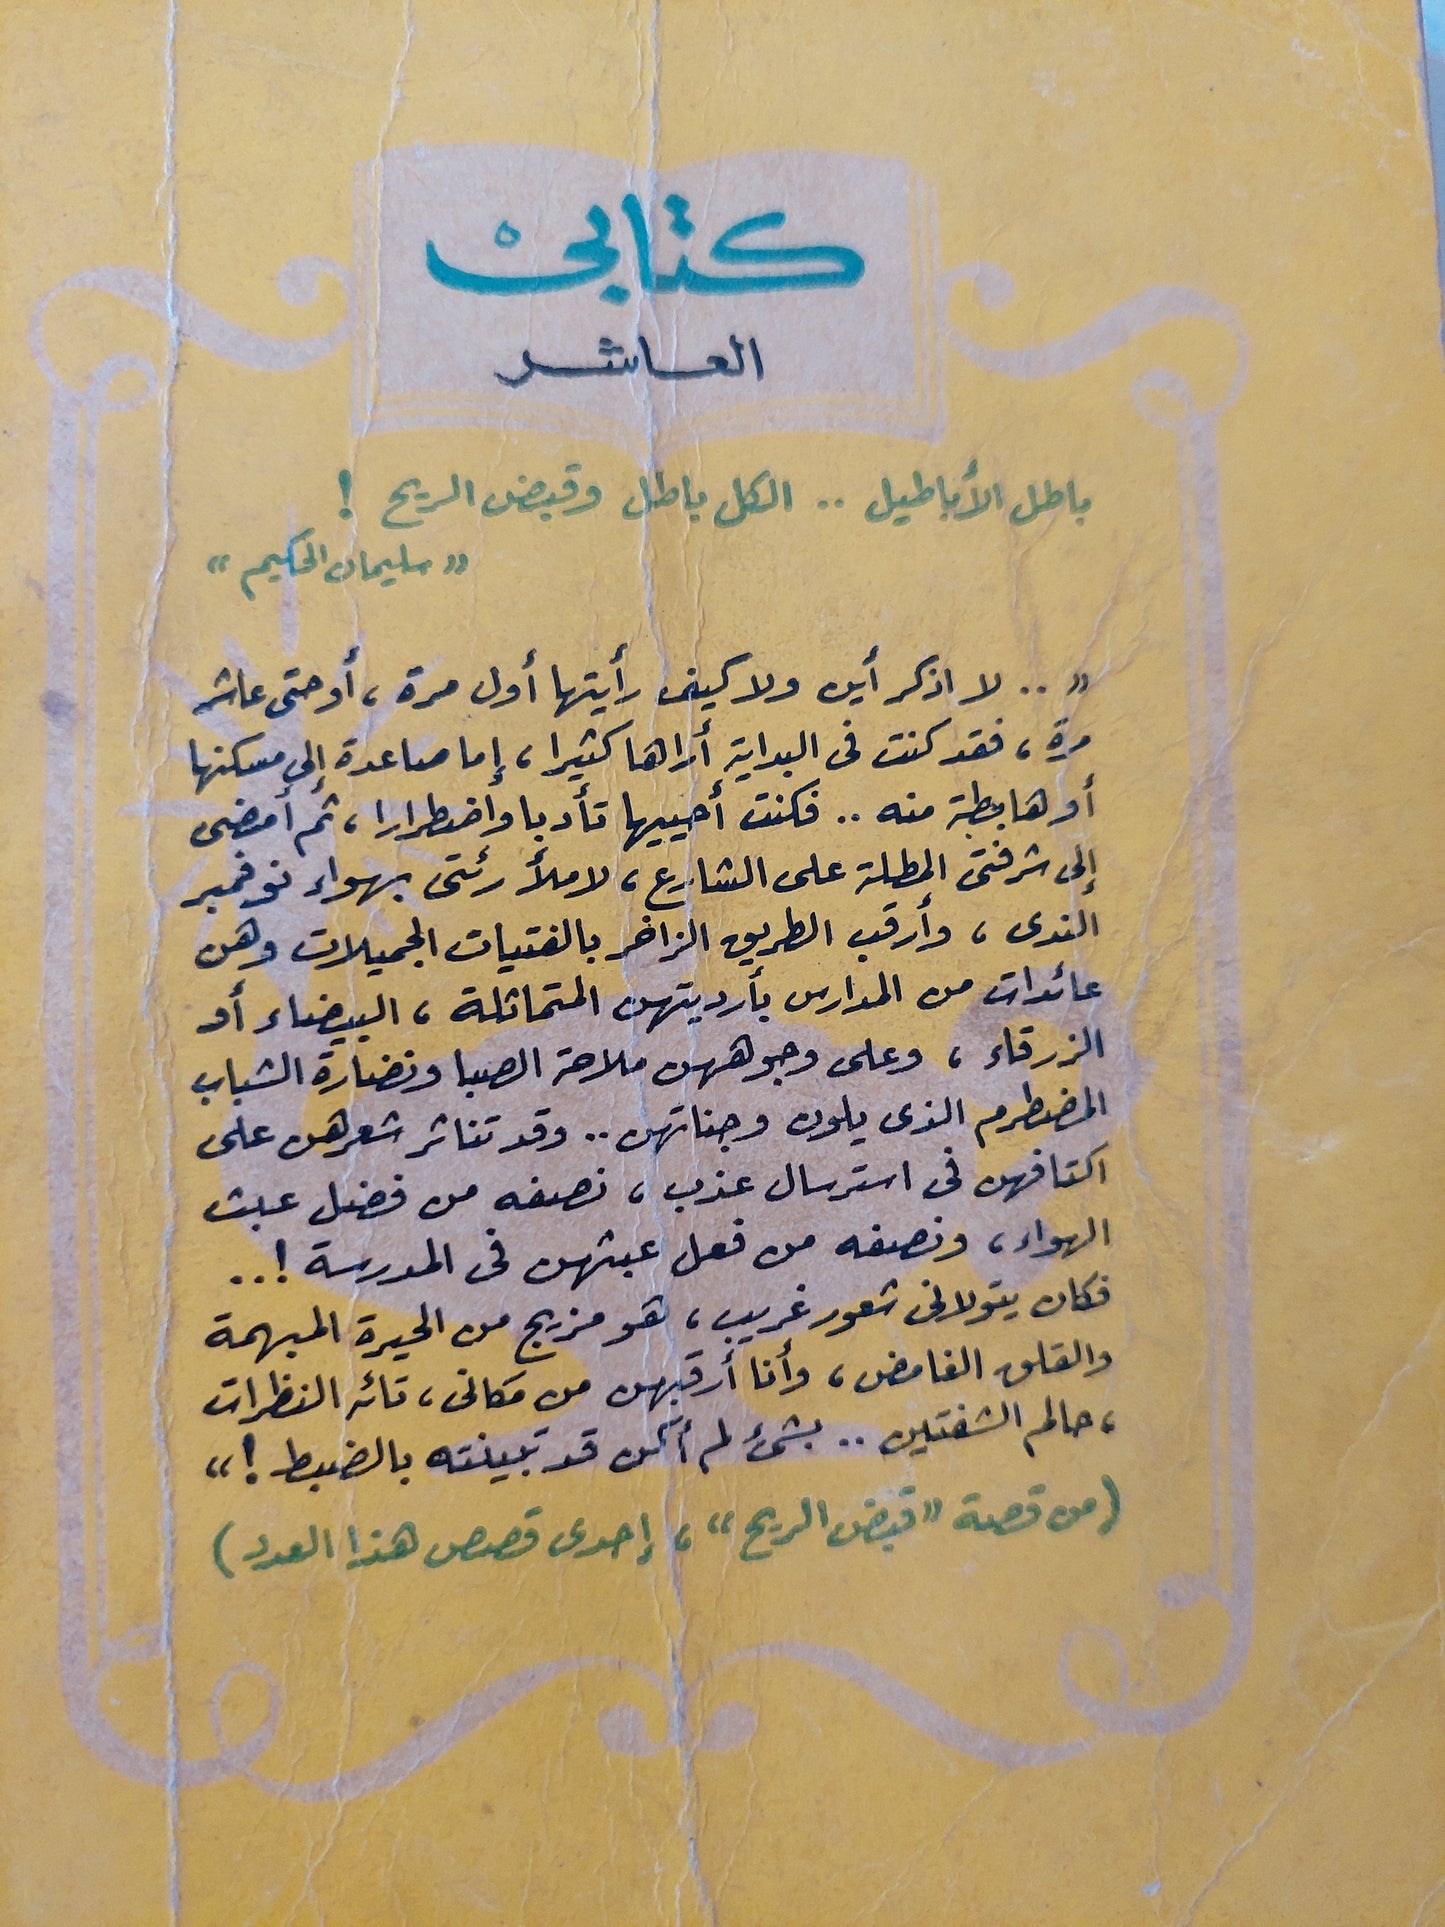 كتابى
العاشر
باطل الأباطيل .. الكل باطل وقبض الريح !
« سليمان الحكيم »
« .. لا اذكر أين ولا كيف رأيتها أول مرة ، أو حتى عاشر
مرة ، فقد كنت فى البداية أراها كثيرا ، إما صاعدة إلى مسكنها
أو هابطة منه .. فكنت أحييها تأدبا واضطرارا ، ثم أمضى
إلى شرفتى المطلة على الشارع ، لاملأ رئتى بهواء نوفمبر
الندى ، وأرقب الطريق الزاخر بالفتيات الجميلات وهن
عائدات من المدارس بأرديتهن المتماثلة ، البيضاء أو
الزرقاء ، وعلى وجوههن ملاحة الصبا ونضارة الشباب
المضطرم الذى يلون وجناتهن .. وقد تناثر شعرهن على
اكتافهن فى استرسال عذب ، نصفه من فضل عبث
الهواء ، ونصفه من فعل عبثهن فى المدرسة !..
فكان يتولانى شعور غريب ، هو مزيج من الحيرة المبهمة
والقلق الغامض ، وأنا أرقبهن من مكانى ، تائه النظرات
، حالم الشفتين .. بشئ لم أكن قد تبينته بالضبط ! »
(من قصة « قبض الريح » ، إحدى قصص هذا العدد)